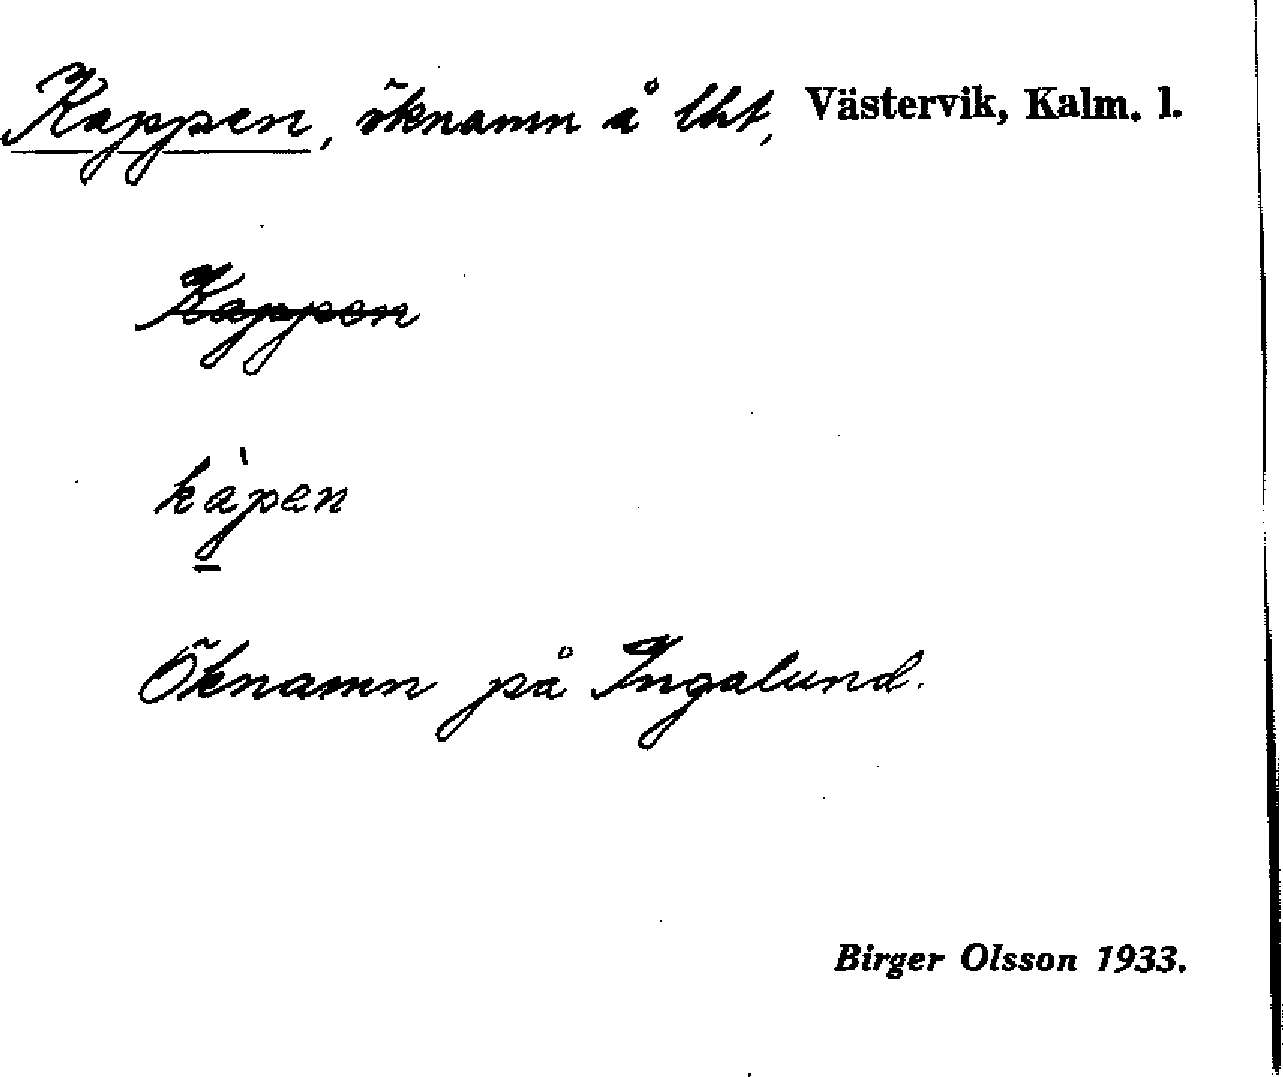 Kappen, öknamn å lht, Västervik, Kalm. l.
Kappen
kàpen
Öknamn på Ingalund.
Birger Olsson 1933.